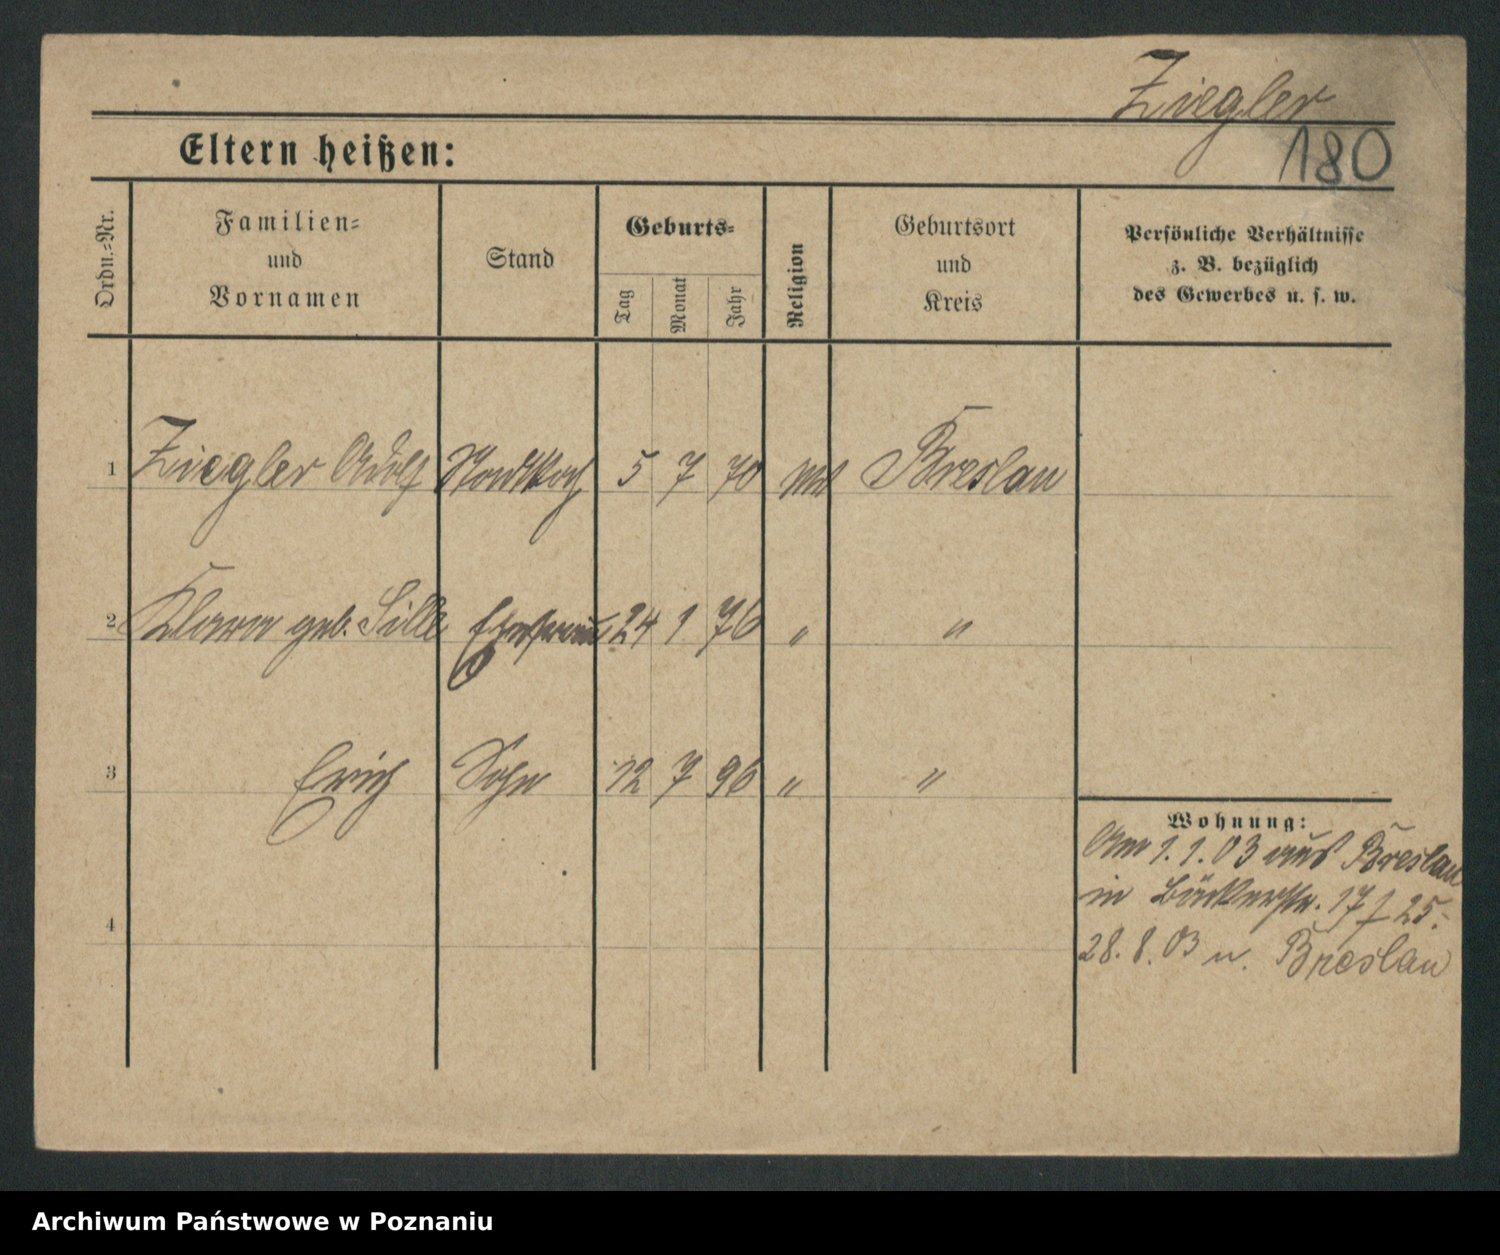 Ziegler
180
Eltern heißen:
Ordn.-Nr.
Familien-
und
Vornamen
Stand
Geburts-
Tag
Monat
Jahr
Religion
Geburtsort
und
Kreis
Persönliche Verhältnisse
z. B. bezüglich
des Gewerbes u. s. w.
1 Ziegler Adolf 5 7 70 Breslau
2 Klara geb. Sille Ehefrau 24 1 76 " "
3 Erich Sohn 12 7 96 " "
Wohnung:
Am 1.1.03 aus Breslau
in Bäckerstr. 17 f 25.
4
28.8.03 n. Breslau
Archiwum Państwowe w Poznaniu